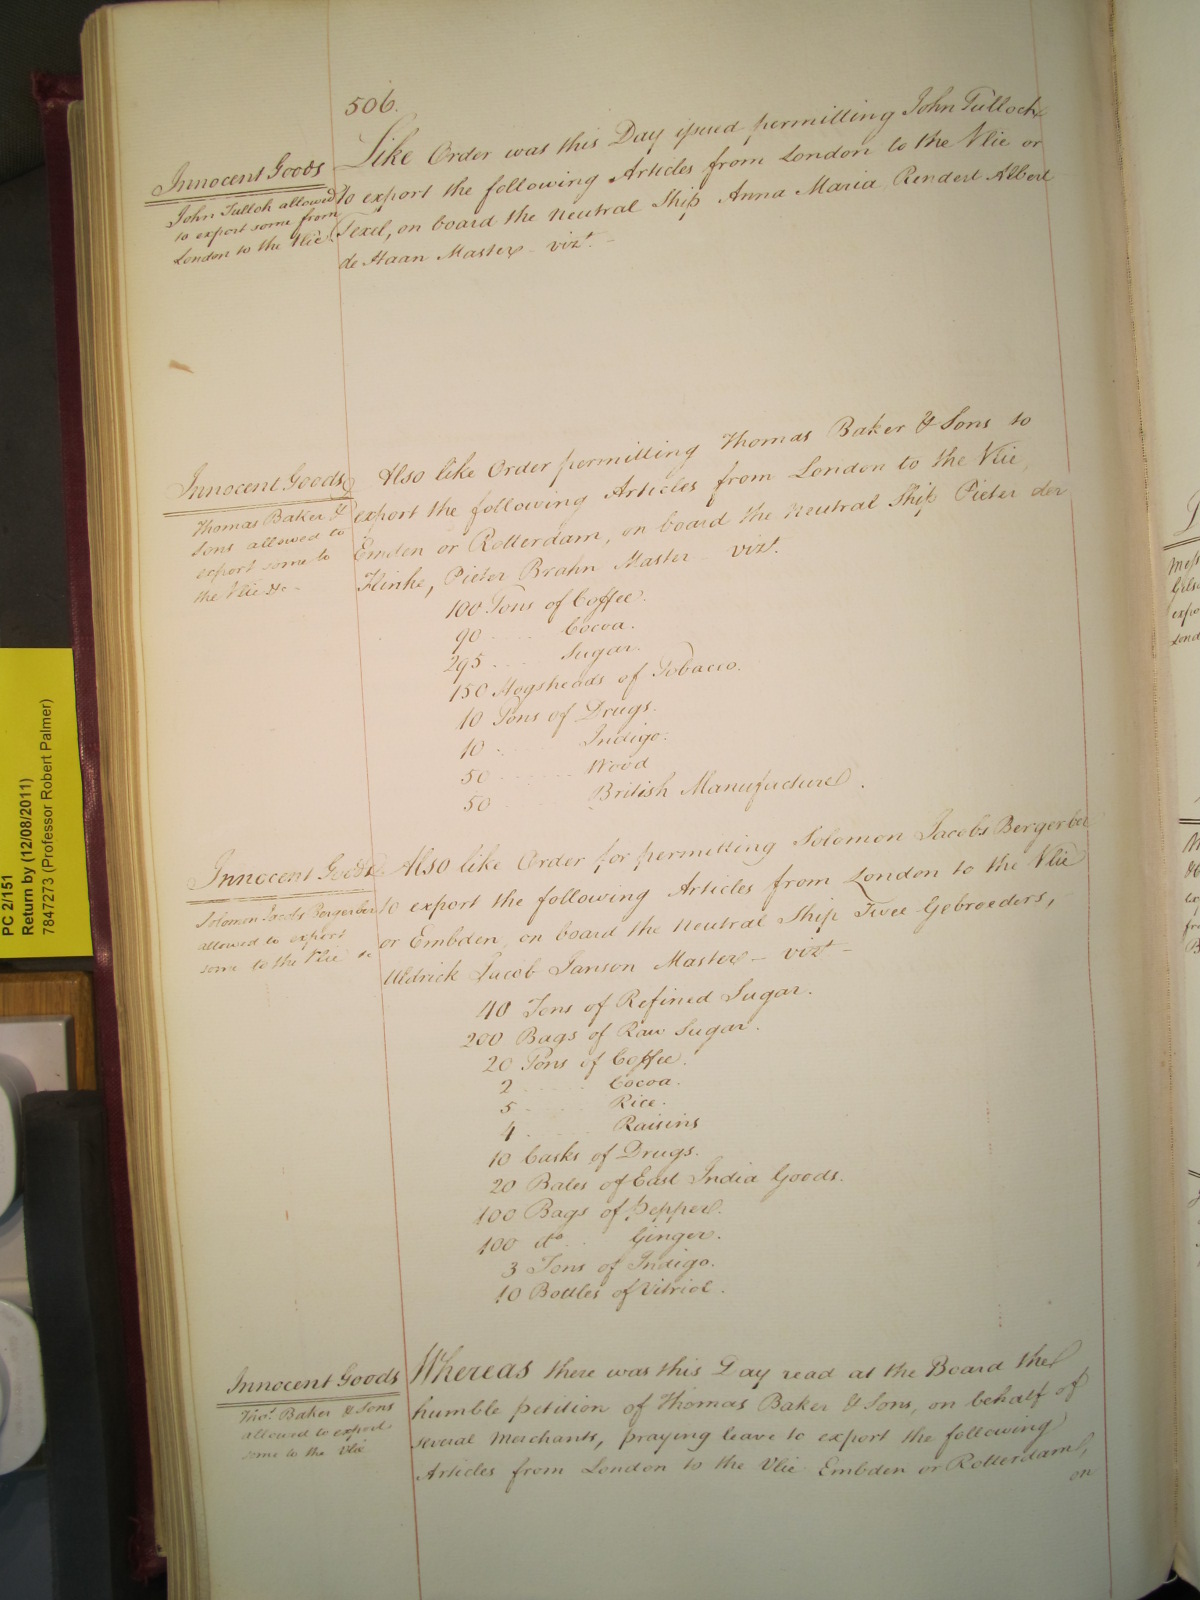 506.
Innocent Goods
John Tulloh allowed
to export some from
London to the Vlie.
Like Order was this Day issued permitting John Tulloch
to export the following Articles from London to the Vlie or
Texel, on board the neutral Ship Anna Maria, Rendert Albert
de Haan Master - vizt. -
Innocent Goods
Thomas Baker &
Sons allowed to
export some to
the Vlie &c -
Also like Order permitting Thomas Baker & Sons to
export the following Articles from London to the Vlie,
Emden or Rotterdam, on board the neutral Ship Pieter der
Pieter Brahn Master - vizt.
100 Tons of Coffee.
90 .... Cocoa.
295 .... Sugar.
150 Hogsheads of Tobacco.
10 Tons of Drugs.
10 .... Indigo.
50 .... Wood
50 .... British Manufacture.
Innocent Goods
Solomon Jacobs Bergerber
allowed to export
some to the Vlie &c
Also like Order for permitting Solomon Jacobs Bergerber
to export the following Articles from London to the Vlie
or Embden, on board the Neutral Ship Twee Gebroeders,
Uldrick Jacob Janson Master - vizt -
40 Tons of Refined Sugar.
200 Bags of Raw Sugar.
20 Tons of Coffee.
2 .... Cocoa.
5 .... Rice.
4 .... Raisins
10 Casks of Drugs.
20 Bales of East India Goods.
100 Bags of Pepper.
100 do .. Ginger.
3 Tons of Indigo.
10 Bottles of Vitriol.
Innocent Goods
Thos. Baker & Sons
allowed to export
some to the Vlie
Whereas there was this Day read at the Board the
humble petition of Thomas Baker & Sons, on behalf of
several Merchants, praying leave to export the following
Articles from London to the Vlie Embden or Rotterdam,
on
PC 2/151
Return by (12/08/2011)
7847273 (Professor Robert Palmer)